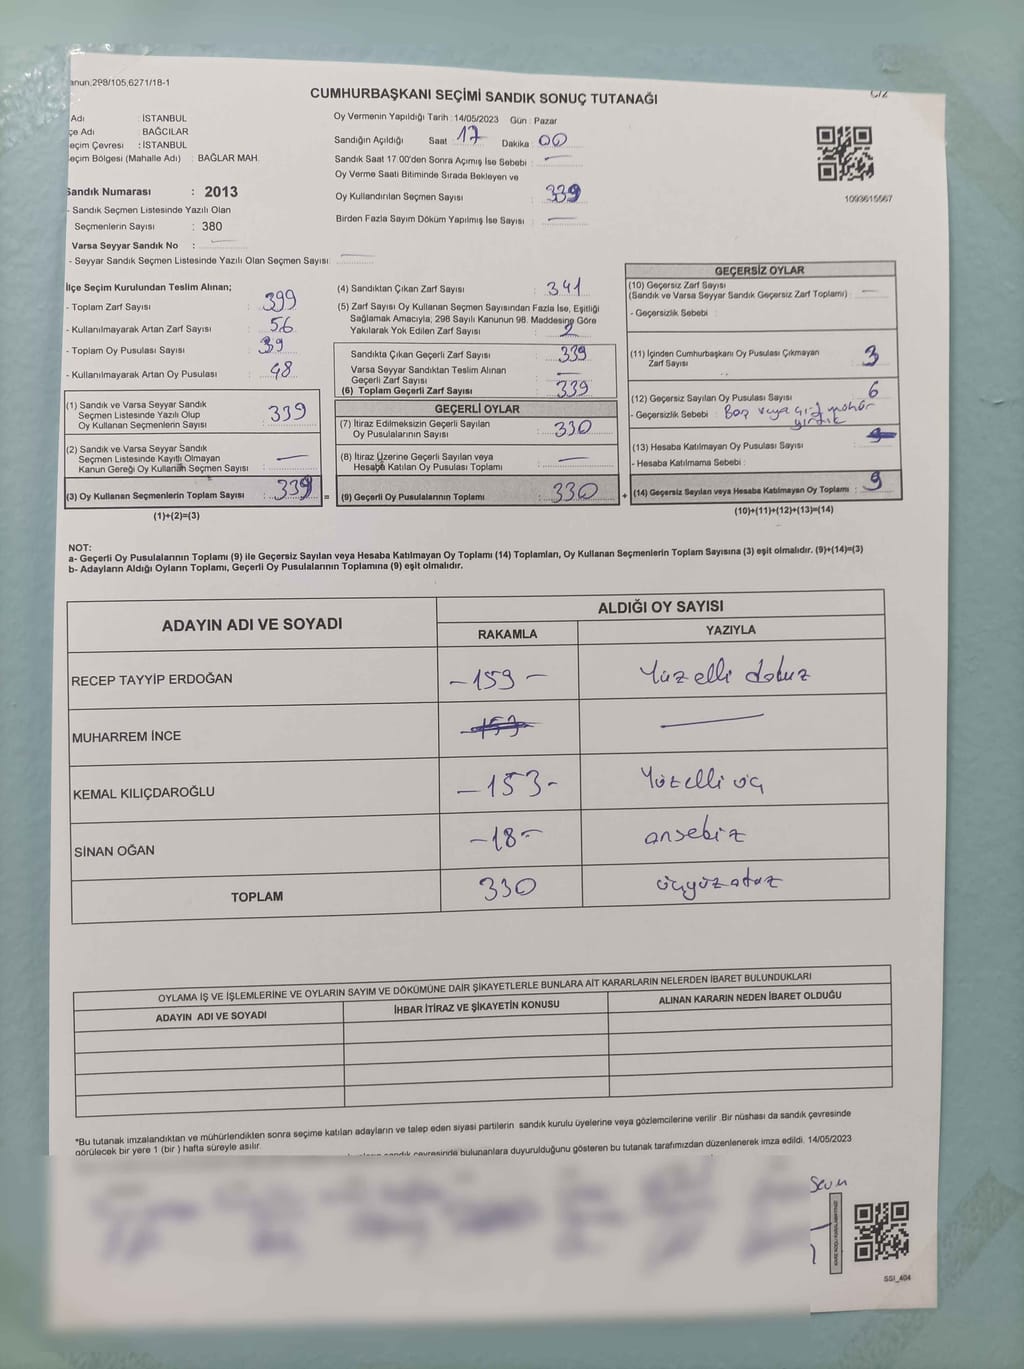 anun:298/105,6271/18-1
CUMHURBAŞKANI SEÇİMİ SANDIK SONUÇ TUTANAĞI
Adı : İSTANBUL
çe Adı : BAĞCILAR
eçim Çevresi : İSTANBUL
eçim Bölgesi (Mahalle Adı) : BAĞLAR MAH.
Oy Vermenin Yapıldığı Tarih : 14/05/2023 Gün : Pazar
Sandığın Açıldığı Saat 17 Dakika : 00
Sandık Saat 17.00'den Sonra Açımış İse Sebebi : —
Oy Verme Saati Bitiminde Sırada Bekleyen ve
Oy Kullandırılan Seçmen Sayısı : 339
Birden Fazla Sayım Döküm Yapılmış İse Sayısı : —
1093615567
Sandık Numarası : 2013
- Sandık Seçmen Listesinde Yazılı Olan
Seçmenlerin Sayısı : 380
Varsa Seyyar Sandık No : —
- Seyyar Sandık Seçmen Listesinde Yazılı Olan Seçmen Sayısı: —
İlçe Seçim Kurulundan Teslim Alınan;
- Toplam Zarf Sayısı : 399
- Kullanılmayarak Artan Zarf Sayısı : 56
- Toplam Oy Pusulası Sayısı : 39
- Kullanılmayarak Artan Oy Pusulası : 48
(1) Sandık ve Varsa Seyyar Sandık
Seçmen Listesinde Yazılı Olup
Oy Kullanan Seçmenlerin Sayısı : 339
(2) Sandık ve Varsa Seyyar Sandık
Seçmen Listesinde Kayıtlı Olmayan
Kanun Gereği Oy Kullanan Seçmen Sayısı : —
(3) Oy Kullanan Seçmenlerin Toplam Sayısı : 339 =
(1)+(2)=(3)
(4) Sandıktan Çıkan Zarf Sayısı : 341
(5) Zarf Sayısı Oy Kullanan Seçmen Sayısından Fazla İse, Eşitliği
Sağlamak Amacıyla, 298 Sayılı Kanunun 98. Maddesine Göre
Yakılarak Yok Edilen Zarf Sayısı : 2
Sandıkta Çıkan Geçerli Zarf Sayısı : 339
Varsa Seyyar Sandıktan Teslim Alınan
Geçerli Zarf Sayısı : —
(6) Toplam Geçerli Zarf Sayısı : 339
GEÇERLİ OYLAR
(7) İtiraz Edilmeksizin Geçerli Sayılan
Oy Pusulalarının Sayısı : 330
(8) İtiraz Üzerine Geçerli Sayılan veya
Hesaba Katılan Oy Pusulası Toplamı : —
(9) Geçerli Oy Pusulalarının Toplamı : 330 +
GEÇERSİZ OYLAR
(10) Geçersiz Zarf Sayısı
(Sandık ve Varsa Seyyar Sandık Geçersiz Zarf Toplamı) : —
- Geçersizlik Sebebi :
(11) İçinden Cumhurbaşkanı Oy Pusulası Çıkmayan
Zarf Sayısı : 3
(12) Geçersiz Sayılan Oy Pusulası Sayısı : 6
- Geçersizlik Sebebi : Boş veya çift mühür
(13) Hesaba Katılmayan Oy Pusulası Sayısı
- Hesaba Katılmama Sebebi :
(14) Geçersiz Sayılan veya Hesaba Katılmayan Oy Toplamı : 9
(10)+(11)+(12)+(13)=(14)
NOT:
a- Geçerli Oy Pusulalarının Toplamı (9) ile Geçersiz Sayılan veya Hesaba Katılmayan Oy Toplamı (14) Toplamları, Oy Kullanan Seçmenlerin Toplam Sayısına (3) eşit olmalıdır. (9)+(14)=(3)
b- Adayların Aldığı Oyların Toplamı, Geçerli Oy Pusulalarının Toplamına (9) eşit olmalıdır.
ADAYIN ADI VE SOYADI
ALDIĞI OY SAYISI
RAKAMLA YAZIYLA
RECEP TAYYİP ERDOĞAN - 159 - Yüz elli dokuz
MUHARREM İNCE —
KEMAL KILIÇDAROĞLU - 153 - Yüzelli üç
SİNAN OĞAN - 18 - onsekiz
TOPLAM 330 üçyüzotuz
OYLAMA İŞ VE İŞLEMLERİNE VE OYLARIN SAYIM VE DÖKÜMÜNE DAİR ŞİKAYETLERLE BUNLARA AİT KARARLARIN NELERDEN İBARET BULUNDUKLARI
ADAYIN ADI VE SOYADI İHBAR İTİRAZ VE ŞİKAYETİN KONUSU ALINAN KARARIN NEDEN İBARET OLDUĞU
*Bu tutanak imzalandıktan ve mühürlendikten sonra seçime katılan adayların ve talep eden siyasi partilerin sandık kurulu üyelerine veya gözlemcilerine verilir .Bir nüshası da sandık çevresinde
görülecek bir yere 1 (bir ) hafta süreyle asılır.
sandık çevresinde bulunanlara duyurulduğunu gösteren bu tutanak tarafımızdan düzenlenerek imza edildi. 14/05/2023
SSI_404